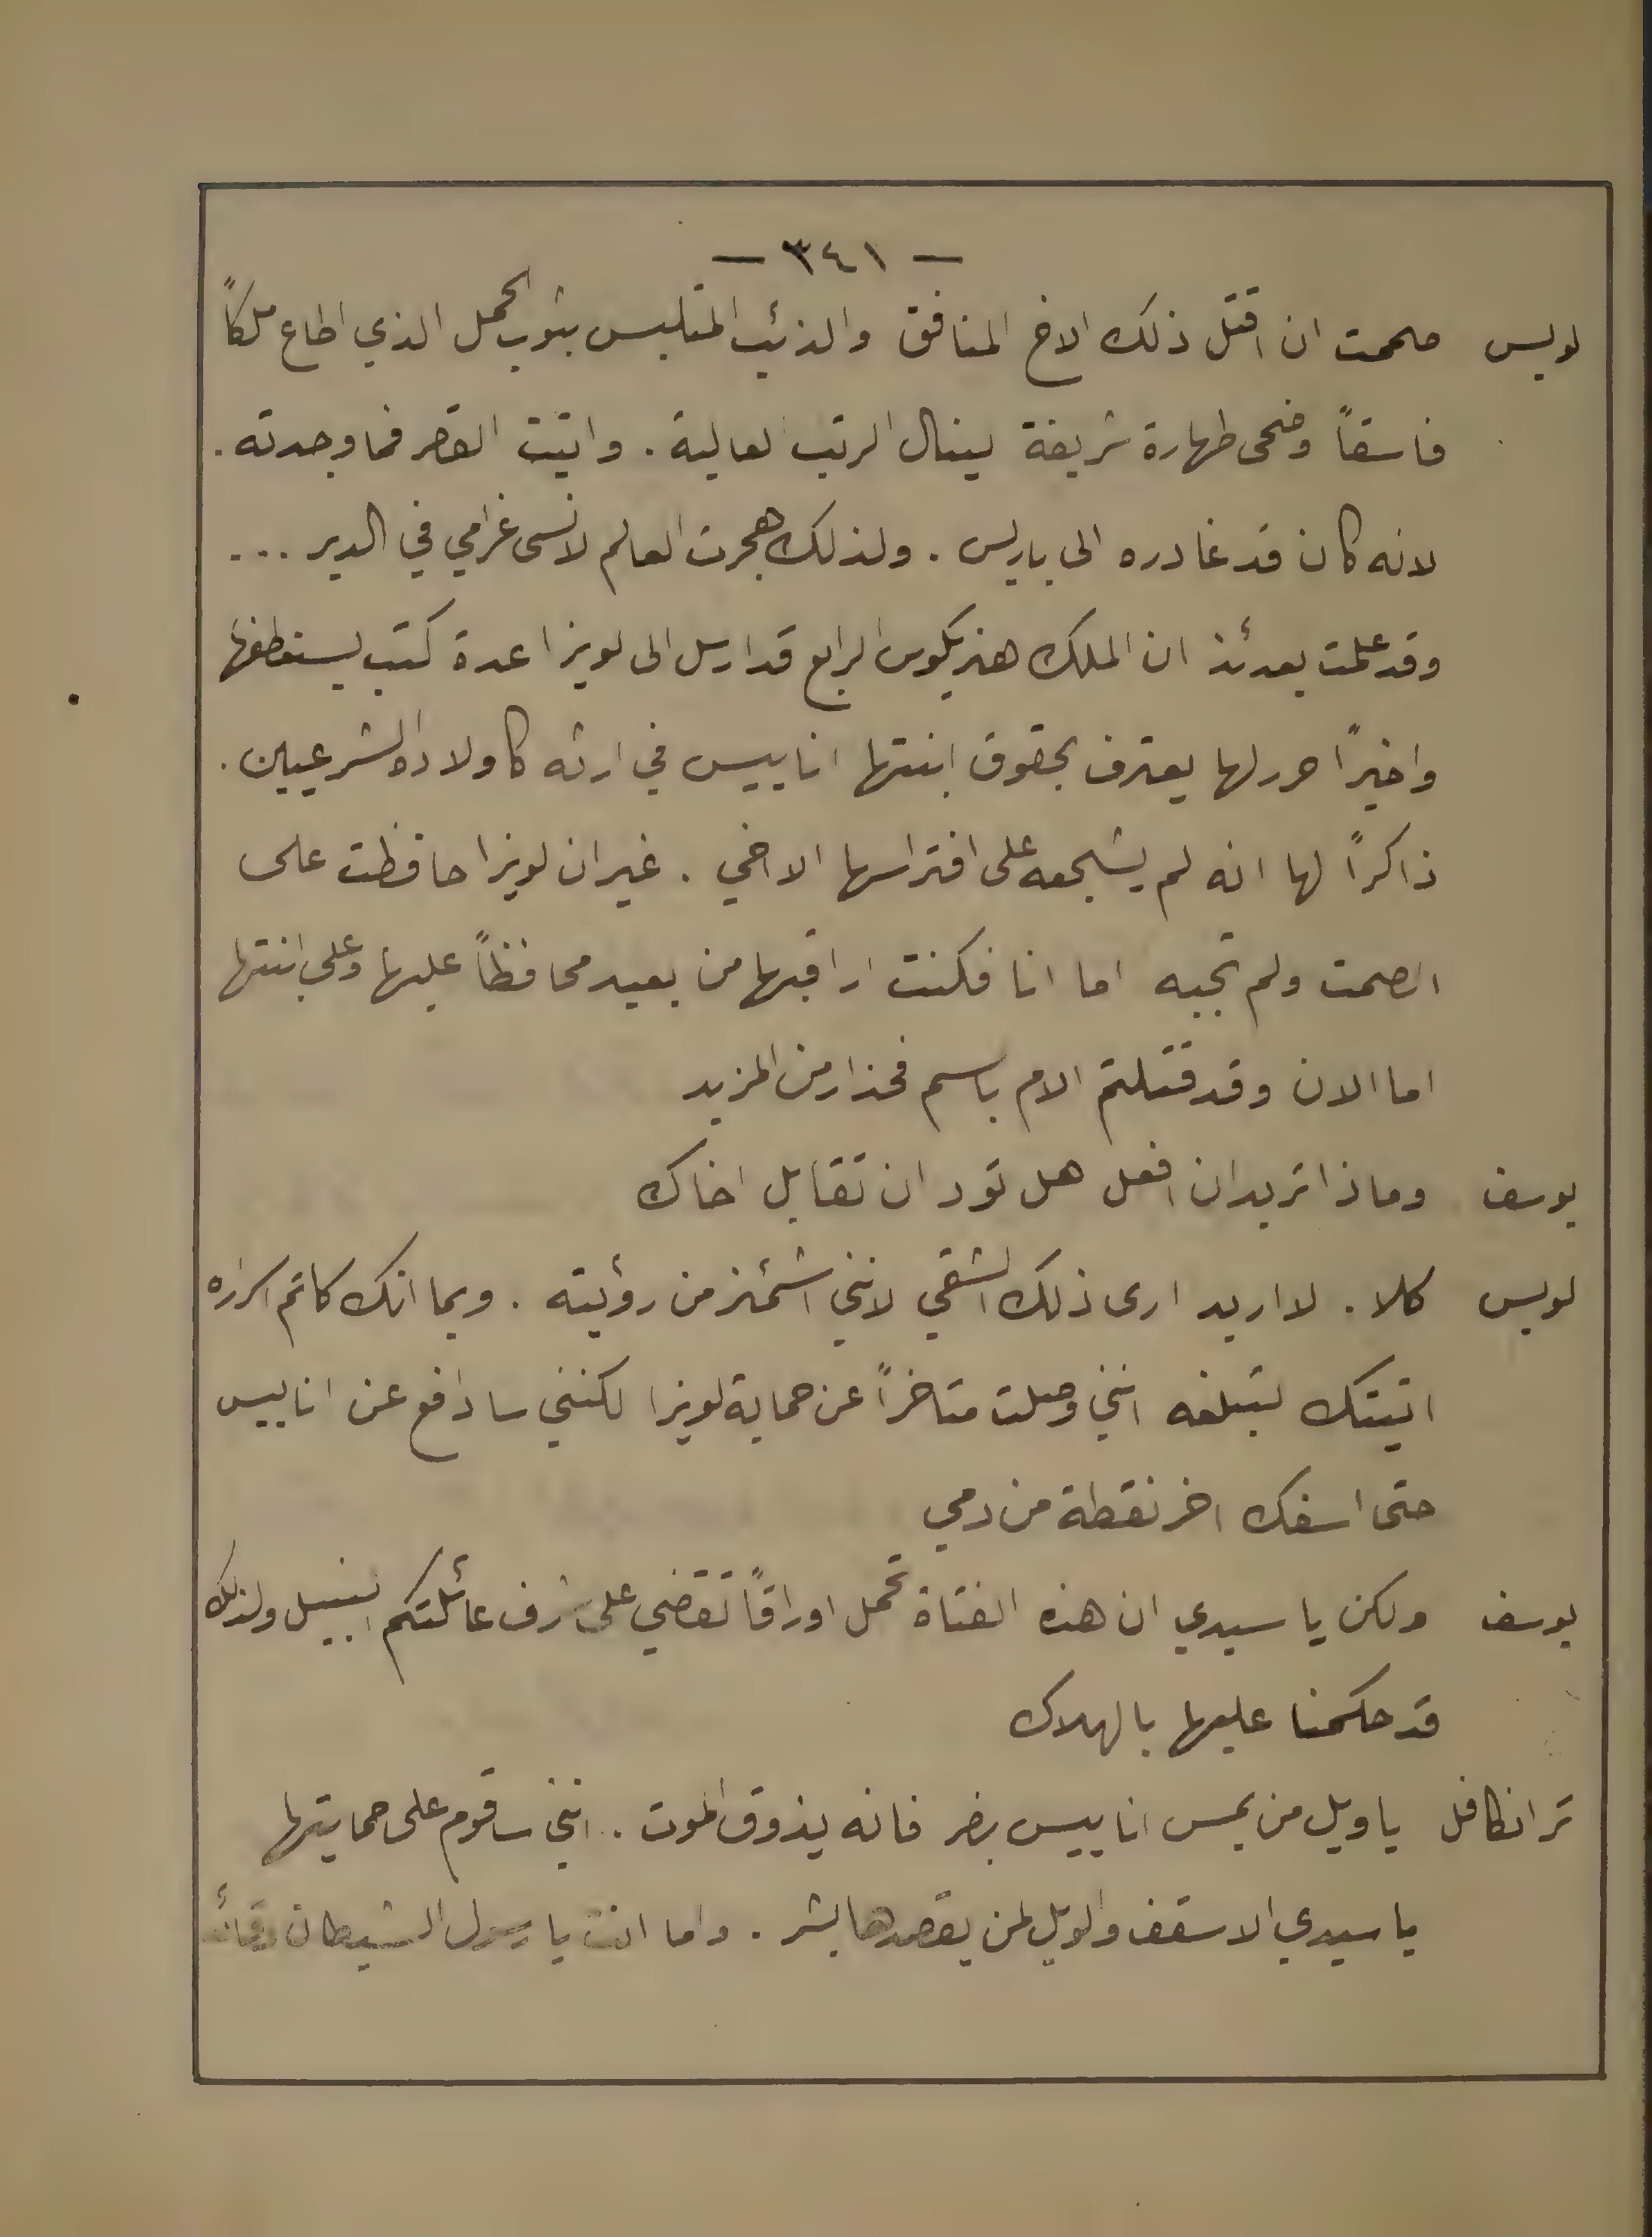 — ٣٤١ —
لويس صممت ان اقتل ذلك الاخ المنافق والذئب المتلبس بثوب الحمل الذي اطاع ملكاً
فاسقاً وضحى طهارة شريفة لينال الرتب العالية . واتيت القصر فما وجدته .
لانه كان قد غادره الى باريس . ولذلك هجرت العالم لانسى غرامي في الدير ...
وقد علمت بعدئذ ان الملك هنريكوس الرابع قد ارسل الى لويزا عدة كتب يستعطفها
واخيراً حرر لها يعترف بحقوق ابنتها اناييس في ارثه كاولاده الشرعيين .
ذاكراً لها انه لم يشجعه على افتراسها الا اخي . غير ان لويزا حافظت على
الصمت ولم تجبه اما انا فكنت اراقبها من بعيد محافظاً عليها وعلى ابنتها
اما الان وقد قتلتم الام باسم فحذار من المزيد
يوسف وماذا تريد ان افعل هل تود ان تقابل اخاك
لويس كلا . لا اريد ارى ذلك الشقي لانني اشمئز من رؤيته . وبما انك كاتم اسراره
اتيتك لتبلغه انني وصلت متاخراً عن حماية لويزا لكنني سادافع عن اناييس
حتى اسفك اخر نقطة من دمي
يوسف ولكن يا سيدي ان هذه الفتاة تحمل اوراقاً تقضي على شرف عائلتكم النبيل ولذلك
قد حكمنا عليها بالهلاك
ترانكافل يا ويل من يمس اناييس بضر فانه يذوق الموت . انني ساقوم على حمايتها
يا سيدي الاسقف والويل لمن يقصدها بشر . واما انت يا رسول الشيطان